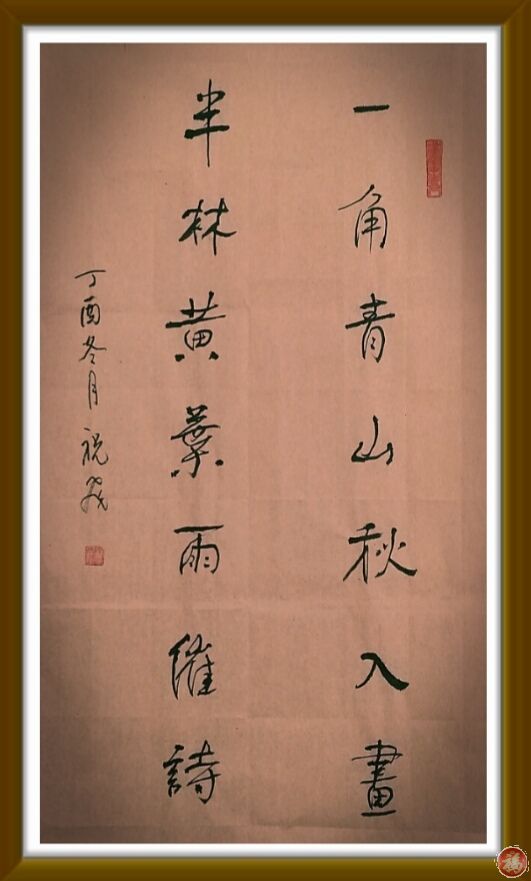 一角青山秋入畫
半林黄葉雨催詩
丁酉冬月祝
福